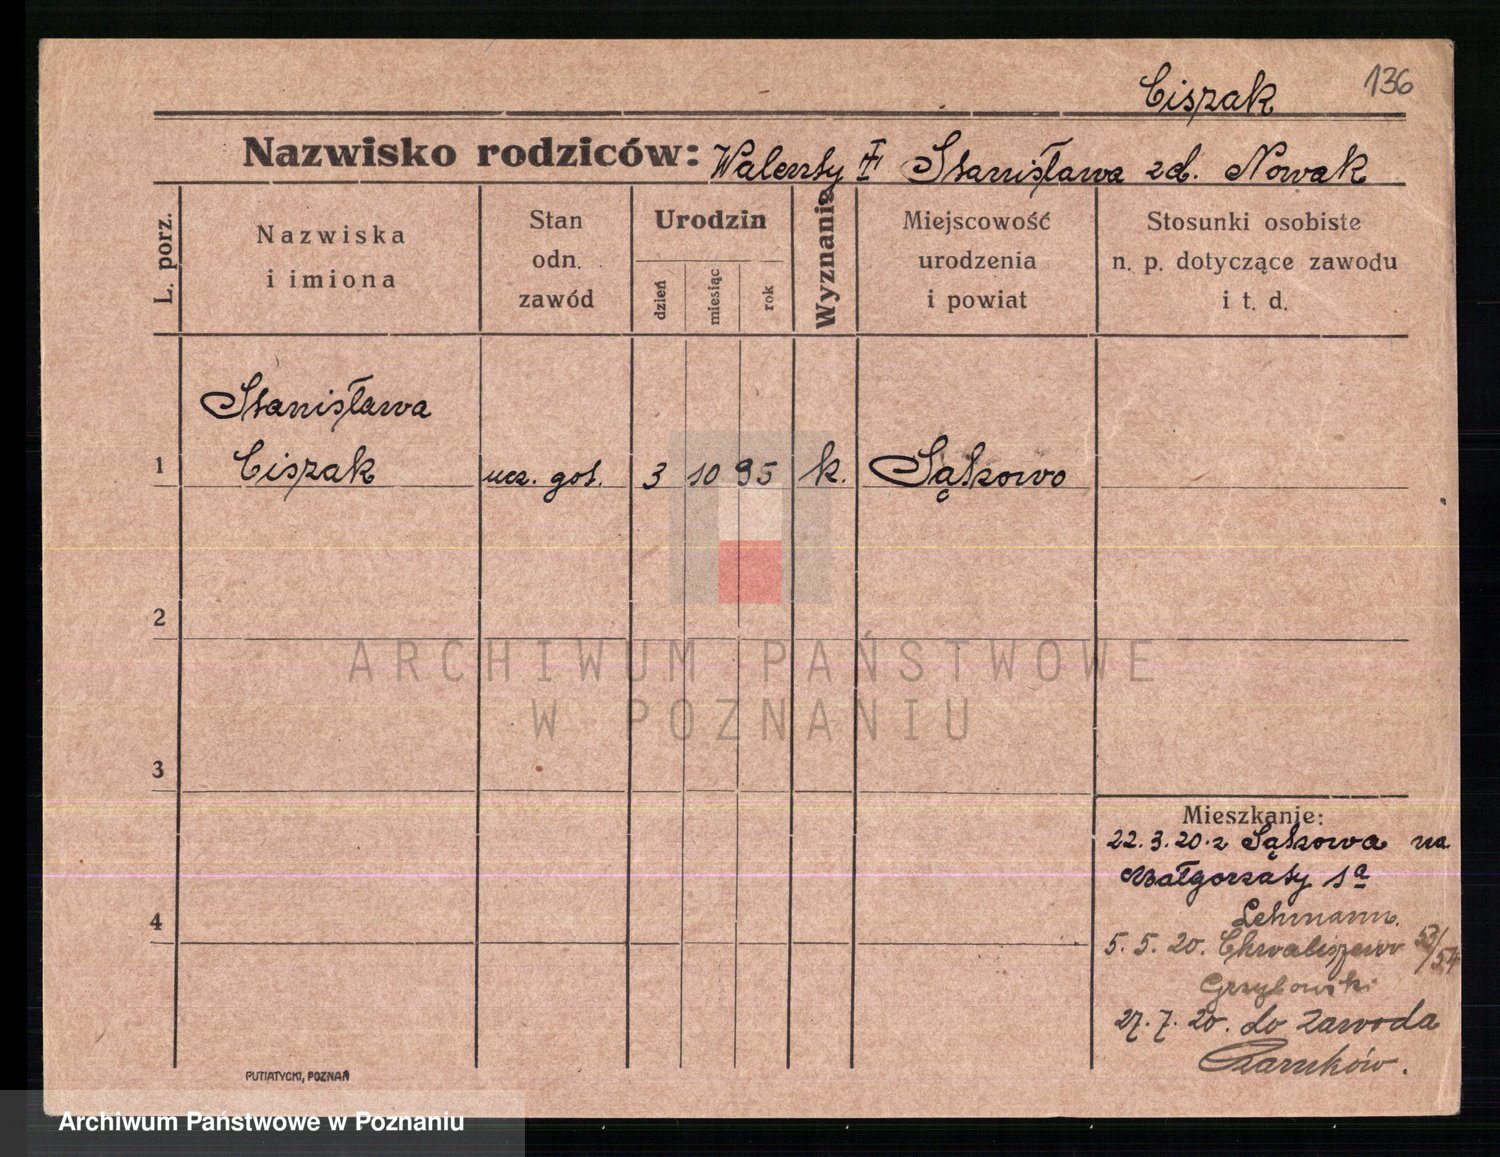 Ciszak 136
Nazwisko rodziców: Walenty Stanisława zd. Nowak
L. porz.
Nazwiska
i imiona
Stan
odn.
zawód
Urodzin
dzień
miesiąc
rok
Wyznanie
Miejscowość
urodzenia
i powiat
Stosunki osobiste
n. p. dotyczące zawodu
i t. d.
Stanisława
1 Ciszak ucz. got. 3 10 95 k. Sątkowo
2
3
4
Mieszkanie:
22.3.20. z Sątkowa na
Małgorzaty 1a
Lehmann.
5. 5. 20. Chwaliszewo 53/54
Grzybowski
27. 7. 20. do Zawoda
PUTIATYCKI, POZNAŃ
ARCHIWUM PAŃSTWOWE
W POZNANIU
Archiwum Państwowe w Poznaniu